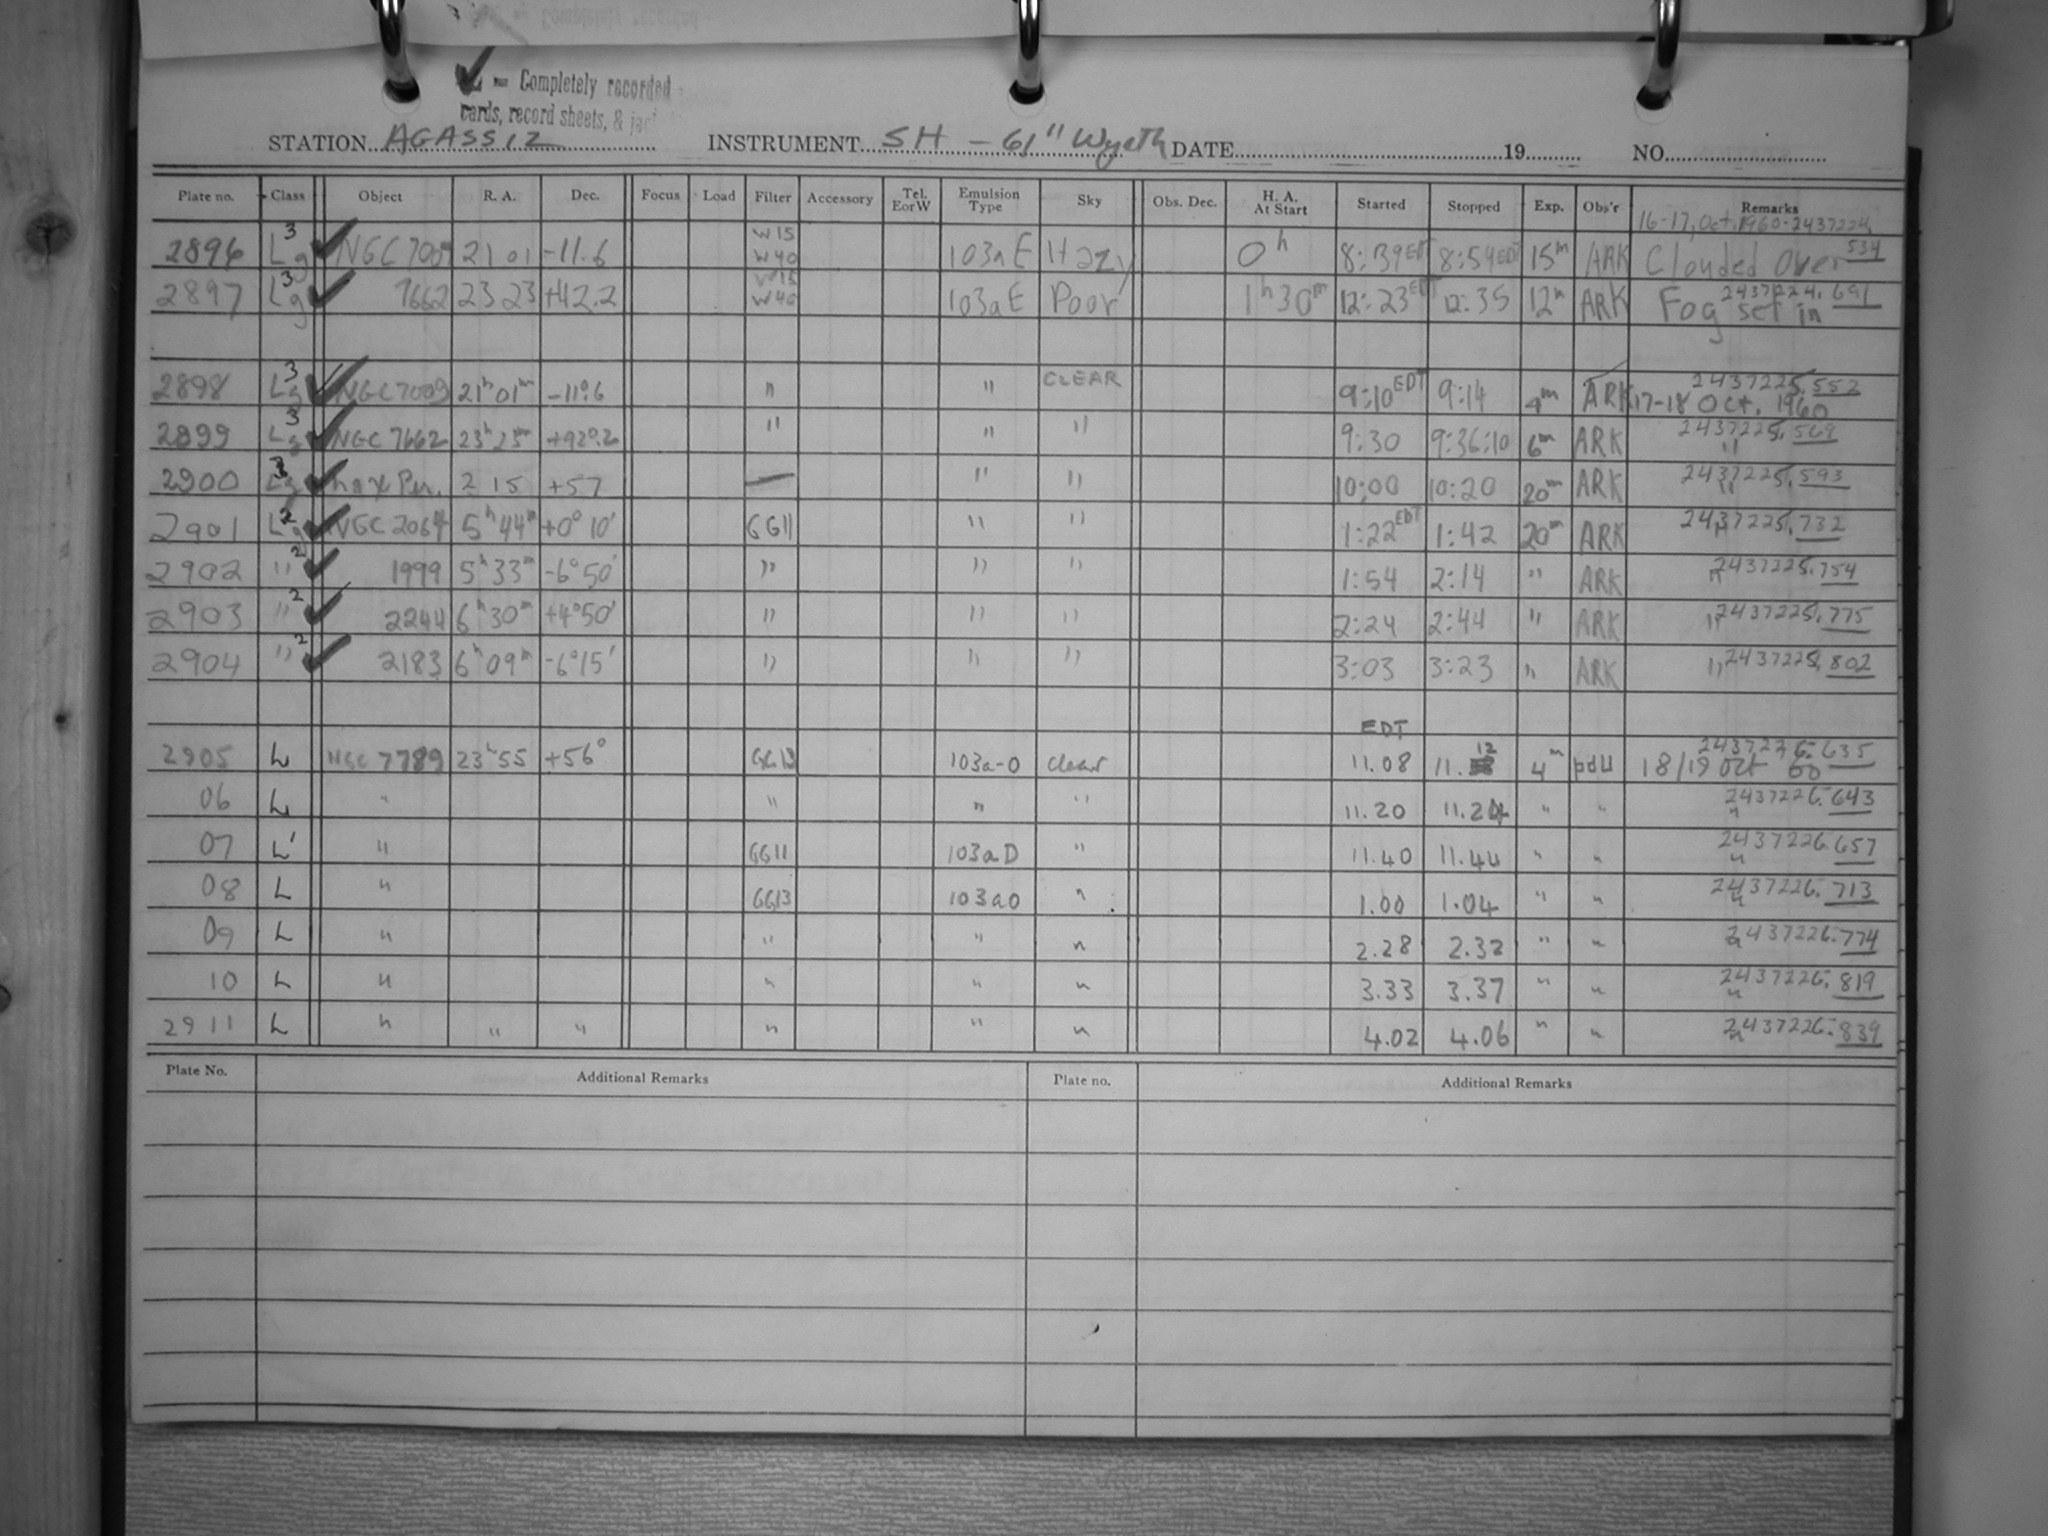 ✓ - Completely recorded
cards, record sheets, & jac
STATION AGASSIZ INSTRUMENT SH - 61" Wyeth DATE 19 NO.
Plate no. Class Object R. A. Dec. Focus Load Filter Accessory Tel. E or W Emulsion Type Sky Obs. Dec. H. A. At Start Started Stopped Exp. Obs'r Remarks
16-17, Oct. 1960-2437224.
2896 Lg3 NGC 7009 21 01 -11.6 W15 W40 103aE Hazy 0h 8:39 EDT 8:54 EDT 15m ARK Clouded Over 534
2897 Lg3 7662 23 23 +42.2 W15 W40 103aE Poor 1h30m 12:23 EDT 12:35 12m ARK Fog set in 2437224.691
2898 Lg3 NGC 7009 21h01m -11°6 " " CLEAR 9:10 EDT 9:14 4m ARK 2437225.552 17-18 Oct. 1960
2899 Lg3 NGC 7662 23h23m +42°.2 " " " 9:30 9:36:10 6m ARK 2437225.569 "
2900 Lg3 h & χ Per. 2 15 +57 — " " 10:00 10:20 20m ARK 2437225.593 "
2901 Lg2 NGC 2064 5h44m +0°10' GG11 " " 1:22 EDT 1:42 20m ARK 2437225.732 "
2902 "2 1999 5h33m -6°50' " " " 1:54 2:14 " ARK " 2437225.754
2903 "2 2244 6h30m +4°50' " " " 2:24 2:44 " ARK " 2437225.775
2904 "2 2183 6h09m -6°15' " " " 3:03 3:23 " ARK " 2437225.802
EDT
2905 L NGC 7789 23h55 +56° GG13 103a-O clear 11.08 11.12 4m 2437226.635 18/19 Oct 60
06 L " " " " 11.20 11.24 " " 2437226.643 "
07 L' " GG11 103aD " 11.40 11.44 " " 2437226.657 "
08 L " GG13 103aO " 1.00 1.04 " " 2437226.713 "
09 L " " " " 2.28 2.32 " " 2437226.774 "
10 L " " " " 3.33 3.37 " " 2437226.819 "
2911 L " " " " " " 4.02 4.06 " " 2437226.839 "
Plate No. Additional Remarks Plate no. Additional Remarks